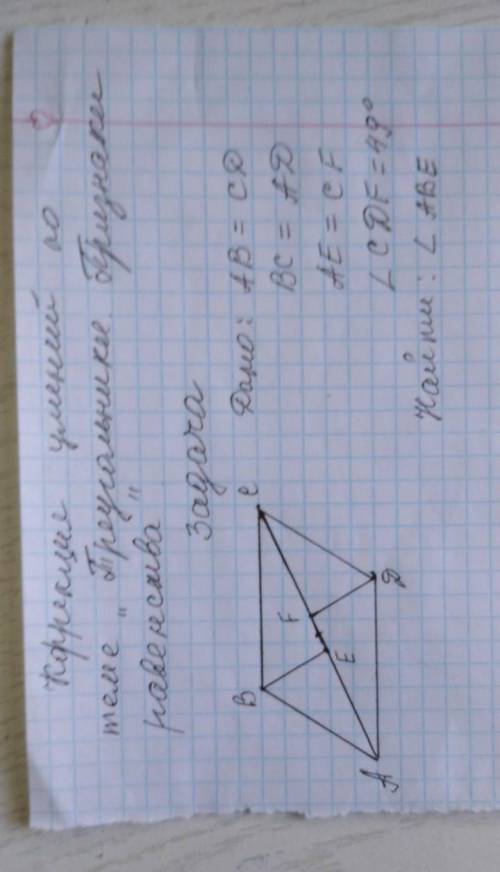 Коррекция умений по
теме "Треугольники. Признаки
равенства"
Задача
Дано: AB = CD
BC = AD
AE = CF
∠CDF = 49°
Найти: ∠ABE
B
C
F
E
A
D